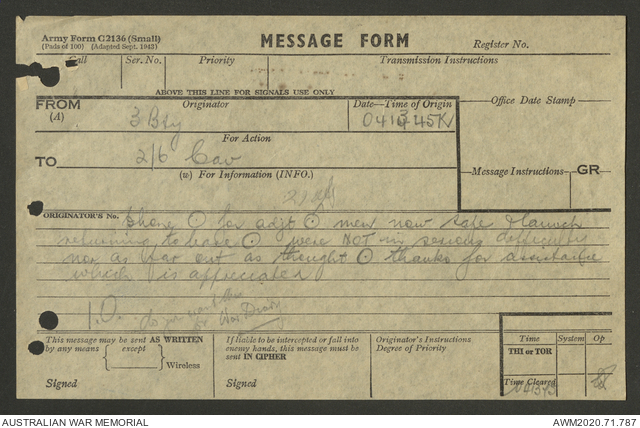 Army Form C2136 (Small)
(Pads of 100) (Adapted Sept. 1943)
MESSAGE FORM
Register No.
Call Ser. No. Priority Transmission Instructions
ABOVE THIS LINE FOR SIGNALS USE ONLY
FROM (A) Originator Date—Time of Origin Office Date Stamp
3 Bty 0413 45K
For Action
TO 2/6 Cav
(w) For Information (INFO.) Message Instructions GR
ORIGINATOR'S No.
phone for adjt men now safe & launch
returning to base were NOT in serious difficulty
nor as far out as thought thanks for assistance
which is appreciated
I.O. do you want this
for War Diary
This message may be sent AS WRITTEN
by any means except
Wireless
Signed
If liable to be intercepted or fall into
enemy hands, this message must be
sent IN CIPHER
Signed
Originator's Instructions
Degree of Priority
Time System Op
THI or TOR
Time Cleared
AUSTRALIAN WAR MEMORIAL AWM2020.71.787